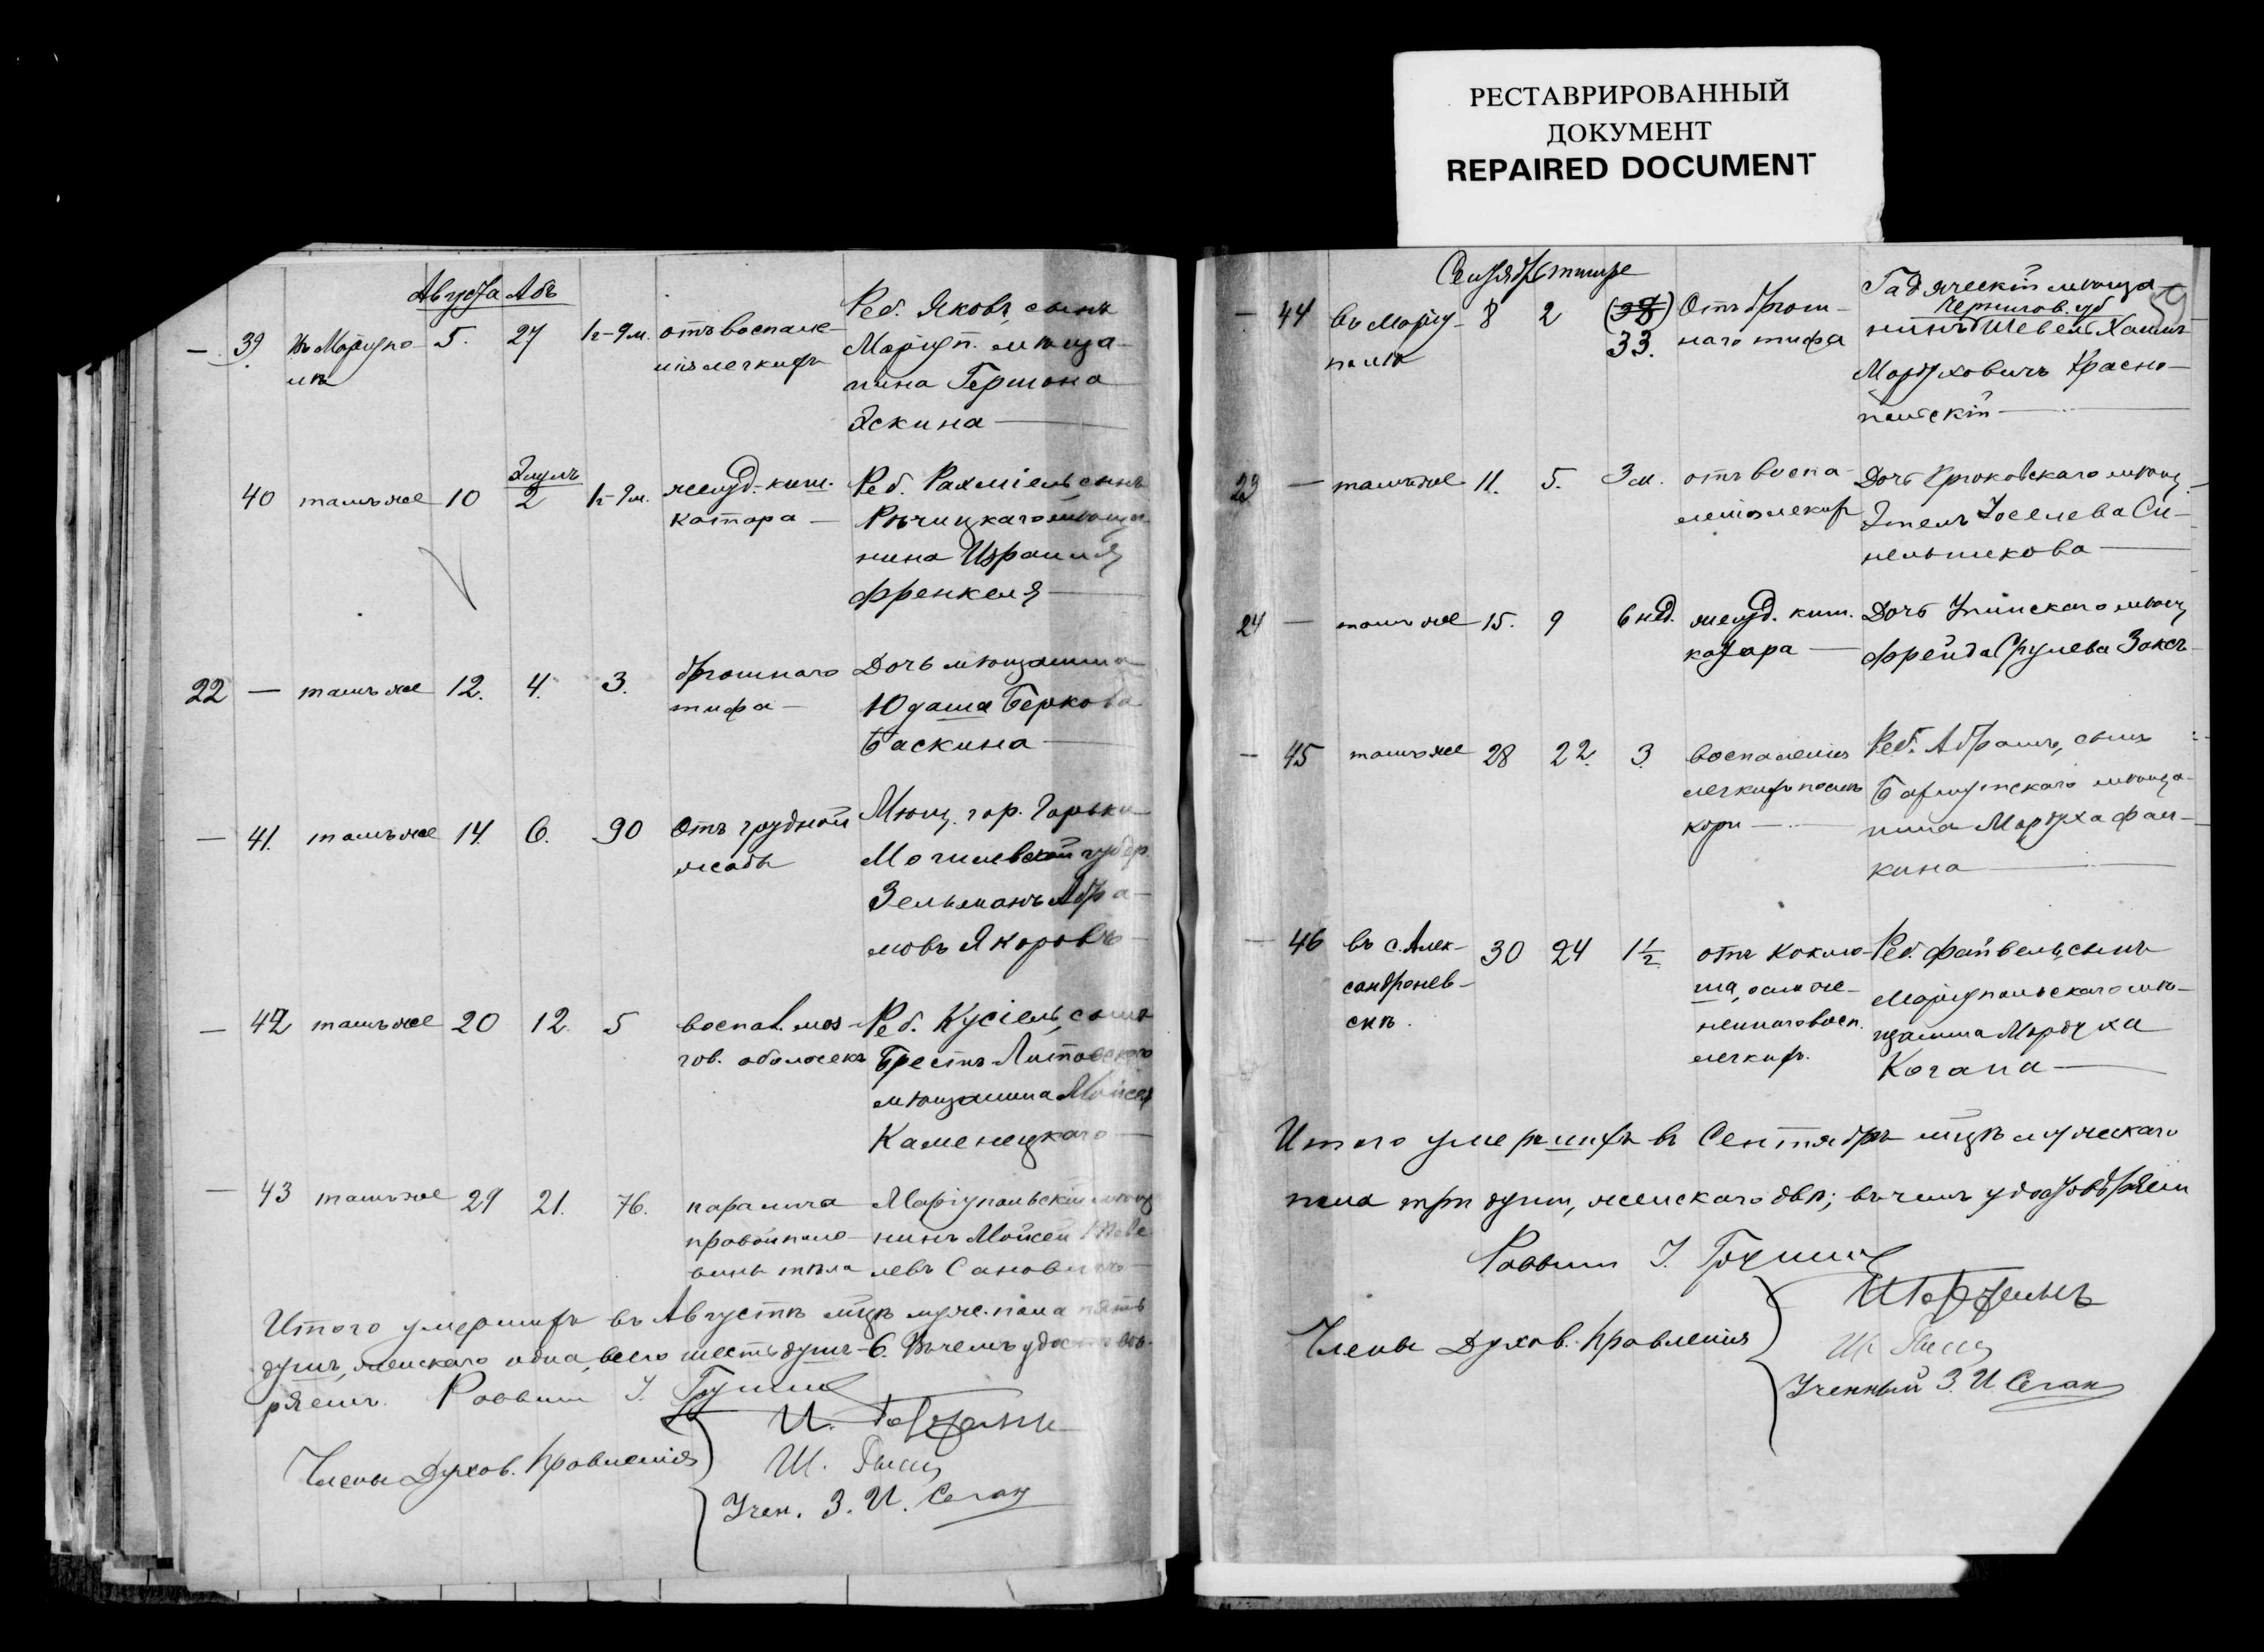 РЕСТАВРИРОВАННЫЙ
ДОКУМЕНТ
REPAIRED DOCUMENT
Августа Абъ
— 39. Въ Маріупо- 5. 27 1г-9м. отъ воспале-
лѣ нія легкихъ
Реб. Яковъ, сынъ
Маріуп. мѣща-
нина Гершона
Эскина —
Элулъ
40 тамъ же 10 2 1г-9м. желуд.-киш.
катара —
Реб. Рахміель, сынъ
Рѣчицкаго мѣща-
нина Израиля
Френкеля —
22 — тамъ же 12. 4. 3. брюшнаго
тифа —
Дочь мѣщанина
Юдаша Беркова
Баскина —
— 41. тамъ же 14. 6. 90 Отъ грудной
жабы
Мѣщ. гор. Горки
Могилевской губ.
Зельманъ Абра-
мовъ Якоровъ
— 42 тамъ же 20 12. 5 воспал. моз-
гов. оболочекъ
Реб. Кусіель, сынъ
Брестъ Литовскаго
мѣщанина Мойсея
Каменецкаго —
— 43 тамъ же 29 21. 76. паралича
правой поло-
вины тѣла
Маріупольскій мѣща-
нинъ Мойсей
левъ Сановичъ
Итого умершихъ въ Августѣ мцѣ муж. пола пять
душъ, женскаго одна, всего шесть душъ-6. Въ чемъ удостовѣ-
ряемъ. Раввинъ І.
Члены Духов. Правленія
И.
Ш.
Учен. З. И. Саган
Сентябрь тишре
— 44 Въ Маріу- 8 2 (38) Отъ брюш-
полѣ 33. наго тифа
Гадяческій мѣща-
Чернигов. губ
нинъ Шевель Хаимъ
Мордуховичъ Красно-
польскій —
23 — тамъ же 11. 5. 3м. отъ воспа-
ленія легких
Дочь Крюковскаго мѣщ.
Этель Іоселева Си-
нельникова —
24 — тамъ же 15. 9 6 нед. желуд. киш.
катара —
Дочь мѣщ
Фрейда Срулева Заксъ
— 45 тамъ же 28 22. 3. воспаленія
легкихъ послѣ
кори —
Реб. Абрамъ, сынъ
мѣща-
нина Мордуха Фан-
кина —
— 46 въ с. Алек- 30 24 1½ отъ коклю-
сандровѣ- ша, осложе-
скѣ. неннаго восп.
легкихъ.
Реб. Файвель, сынъ
Маріупольскаго мѣ-
щанина Мордуха
Когана —
Итого умершихъ въ Сентябрѣ мцѣ мужескаго
пола три души, женскаго двѣ; въ чемъ удостовѣряемъ
Раввинъ І.
Члены Духов. Правленія
Ш.
Ученный З. И. Саган